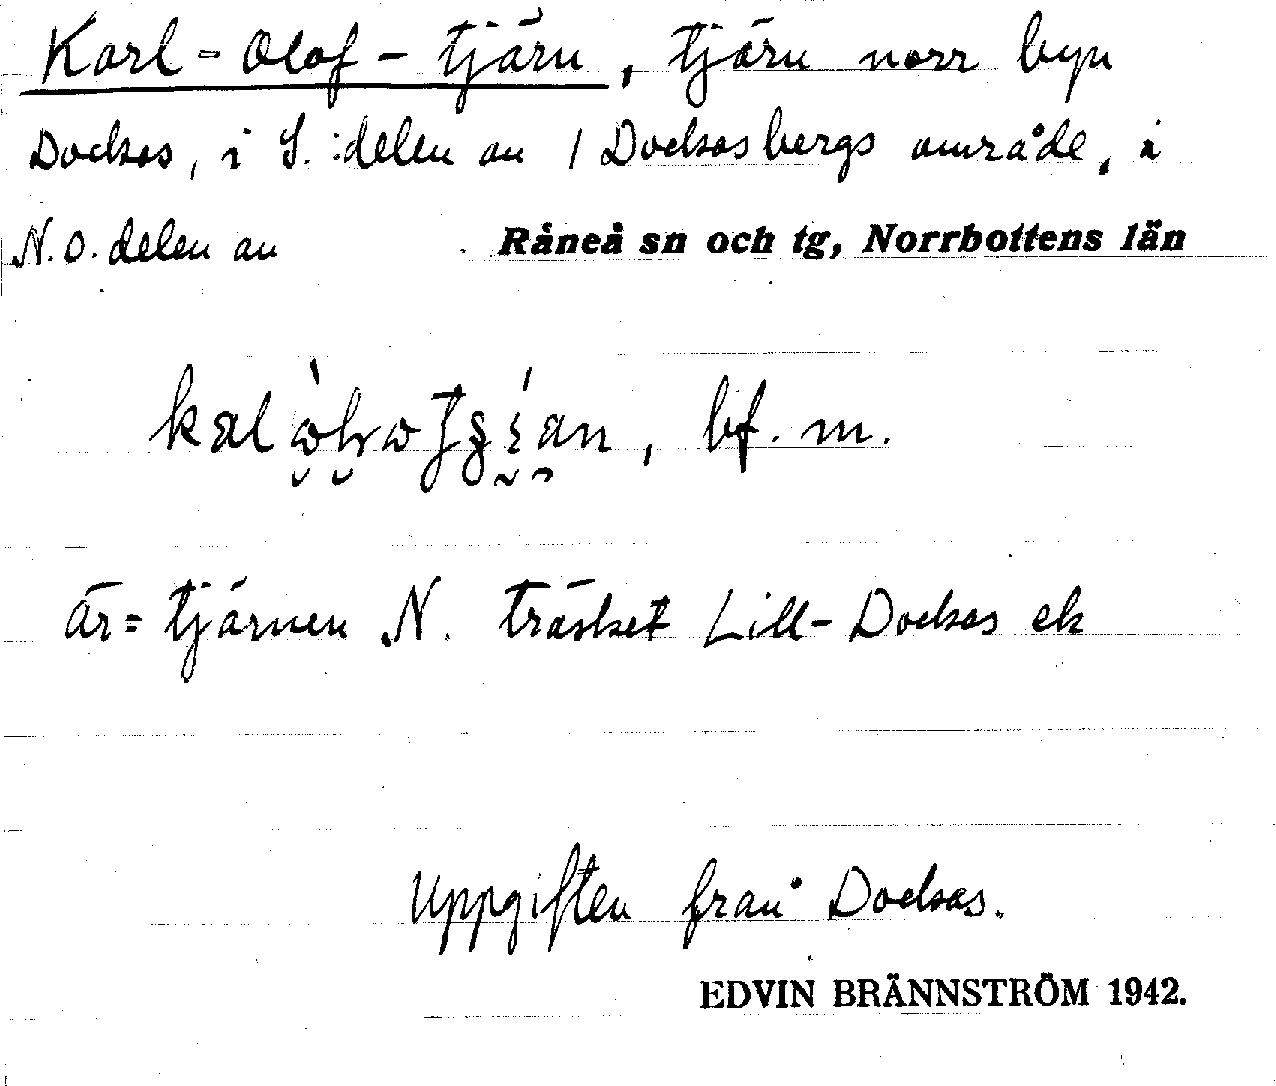 Karl-Olof-tjärn, tjärn norr byn
Docksas, i S. delen av Docksasbergs område, i
N.O. delen av Råneå sn och tg, Norrbottens län
bf. m.
är = tjärnen N. träsket Lill-Docksas ek
Uppgiften från Docksas.
EDVIN BRÄNNSTRÖM 1942.